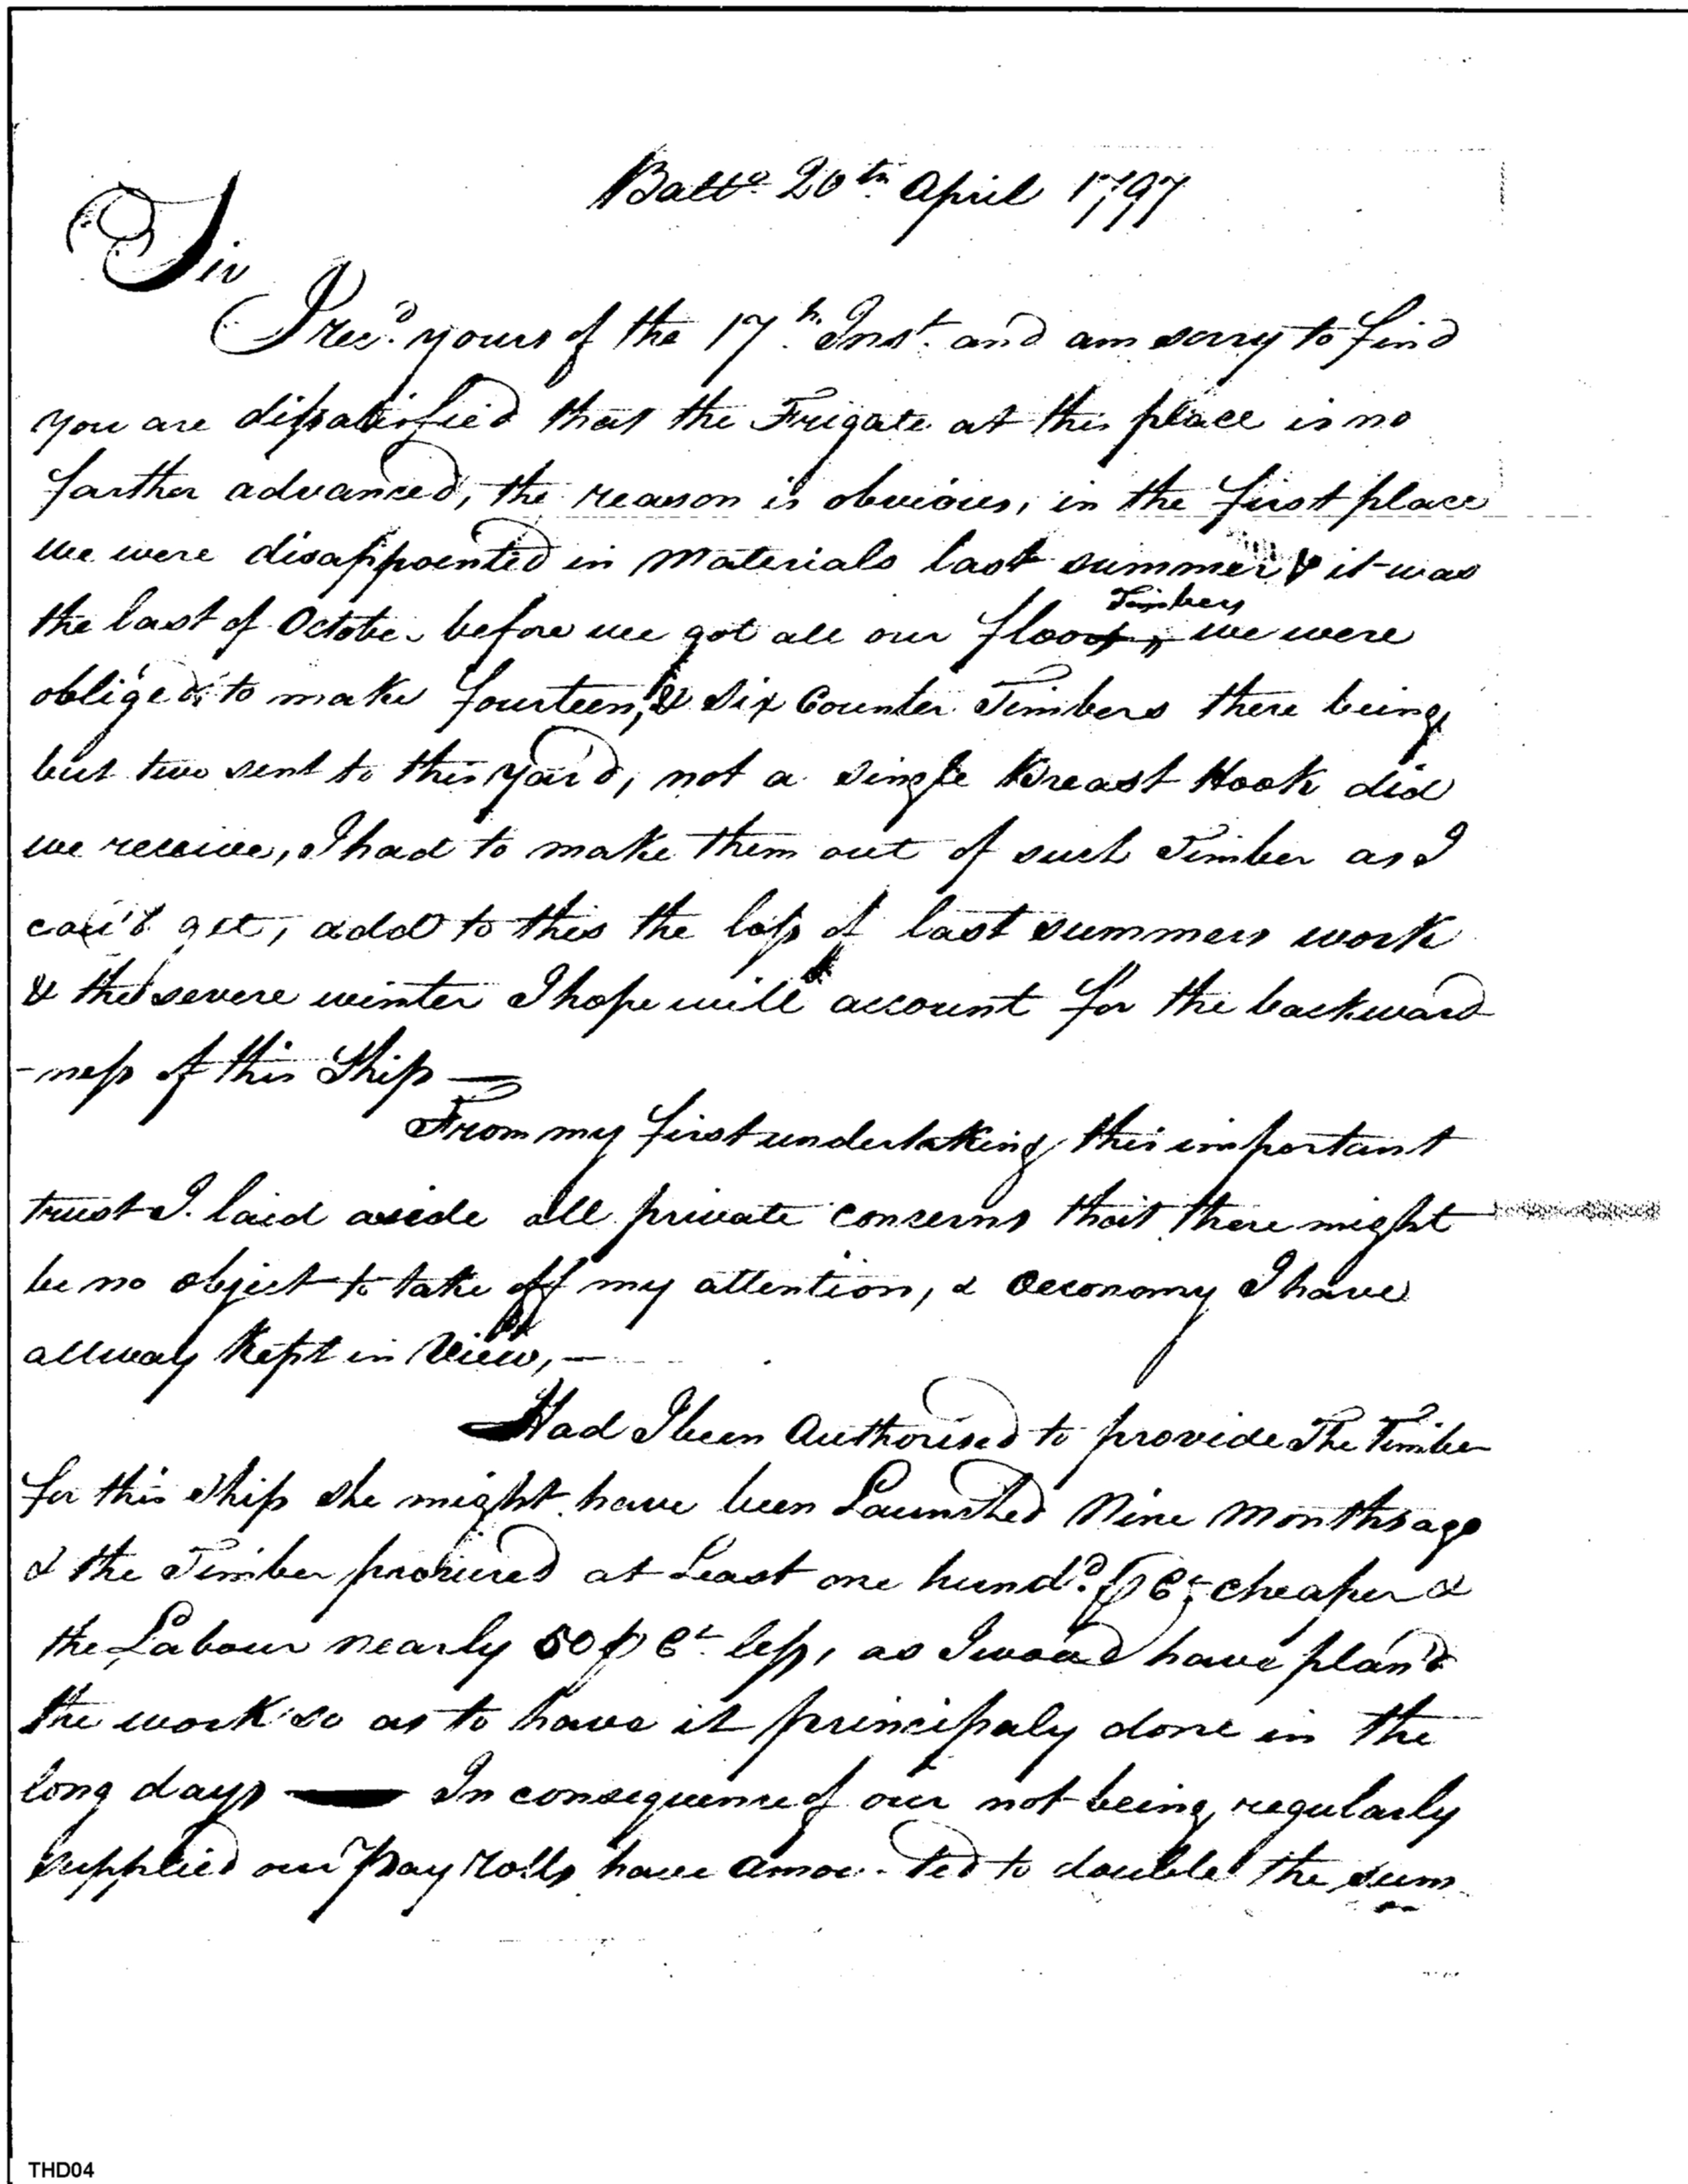 Balto 20th April 1797
Sir
I recd. yours of the 17th. Inst. and am sorry to find
you are dissatisfied that the Frigate at this place is no
farther advanced, the reason is obvious, in the first place
we were disappointed in Materials last summer & it was
the last of October before we got all our floor Timbers, we were
obliged to make fourteen, & six Counter Timbers there being
but two sent to this yard, not a single Breast Hook did
we receive, I had to make them out of such Timber as I
cou'd get, add to this the loss of last summers work
& the severe winter I hope will account for the backward
-ness of this Ship —
From my first undertaking this important
trust I laid aside all private concerns that there might
be no object to take off my attention, & Oeconomy I have
allway kept in View, —
Had I been Authorised to provide The Timber
for this ship she might have been Launched Nine Months ago
& the Timber procured at Least one hundd. ⅌ Ct cheaper &
the Labour nearly 50 ⅌ Ct. less, as I woud have plan'd
the work so as to have it principaly done in the
long days — In consequence of our not being regularly
supplied our Pay rolls have amou ted to double the sum
THD04